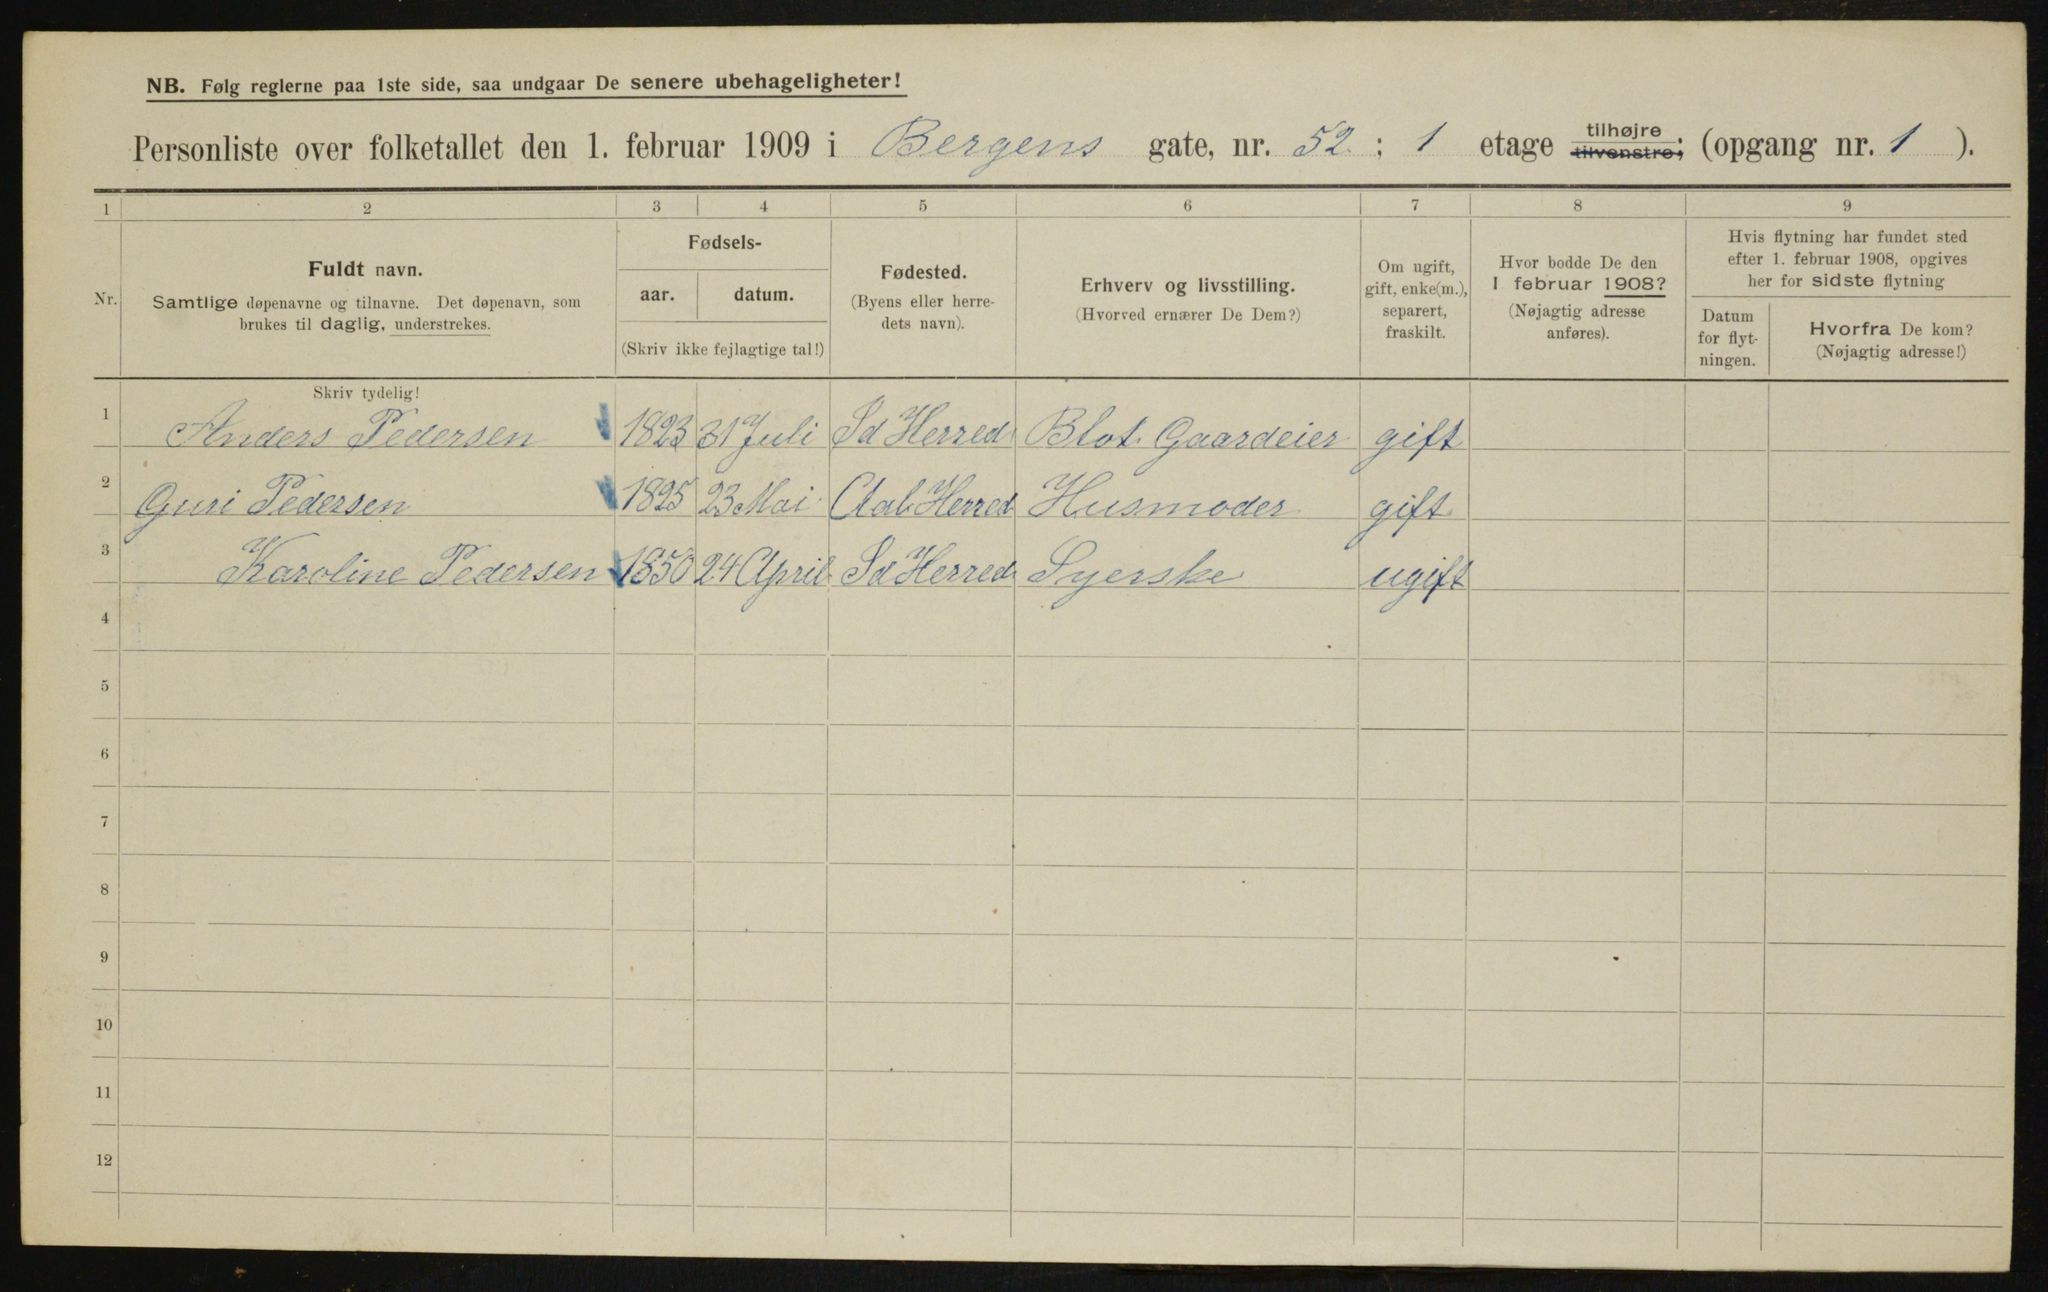 NB. Følg reglerne paa 1ste side, saa undgaar De senere ubehageligheter!
Personliste over folketallet den 1. februar 1909 i Bergens gate, nr. 52 ; 1 etage tilhøjre tilvenstre; (opgang nr. 1 ).
1 2 3 4 5 6 7 8 9
Nr.
Fuldt navn.
Samtlige døpenavne og tilnavne. Det døpenavn, som
brukes til daglig, understrekes.
Fødsels-
aar. datum.
(Skriv ikke fejlagtige tal!)
Fødested.
(Byens eller herre-
dets navn).
Erhverv og livsstilling.
(Hvorved ernærer De Dem?)
Om ugift,
gift, enke(m.),
separert,
fraskilt.
Hvor bodde De den
1 februar 1908?
(Nøjagtig adresse
anføres).
Hvis flytning har fundet sted
efter 1. februar 1908, opgives
her for sidste flytning
Datum
for flyt-
ningen.
Hvorfra De kom?
(Nøjagtig adresse!)
Skriv tydelig!
1 Anders Pedersen 1823 31 Juli Sd Herred Gaardeier gift
2 Guri Pedersen 1825 23 Mai Aal Herred Husmoder gift
3 Karoline Pedersen 1850 24 April Sd Herred Syerske ugift
4
5
6
7
8
9
10
11
12